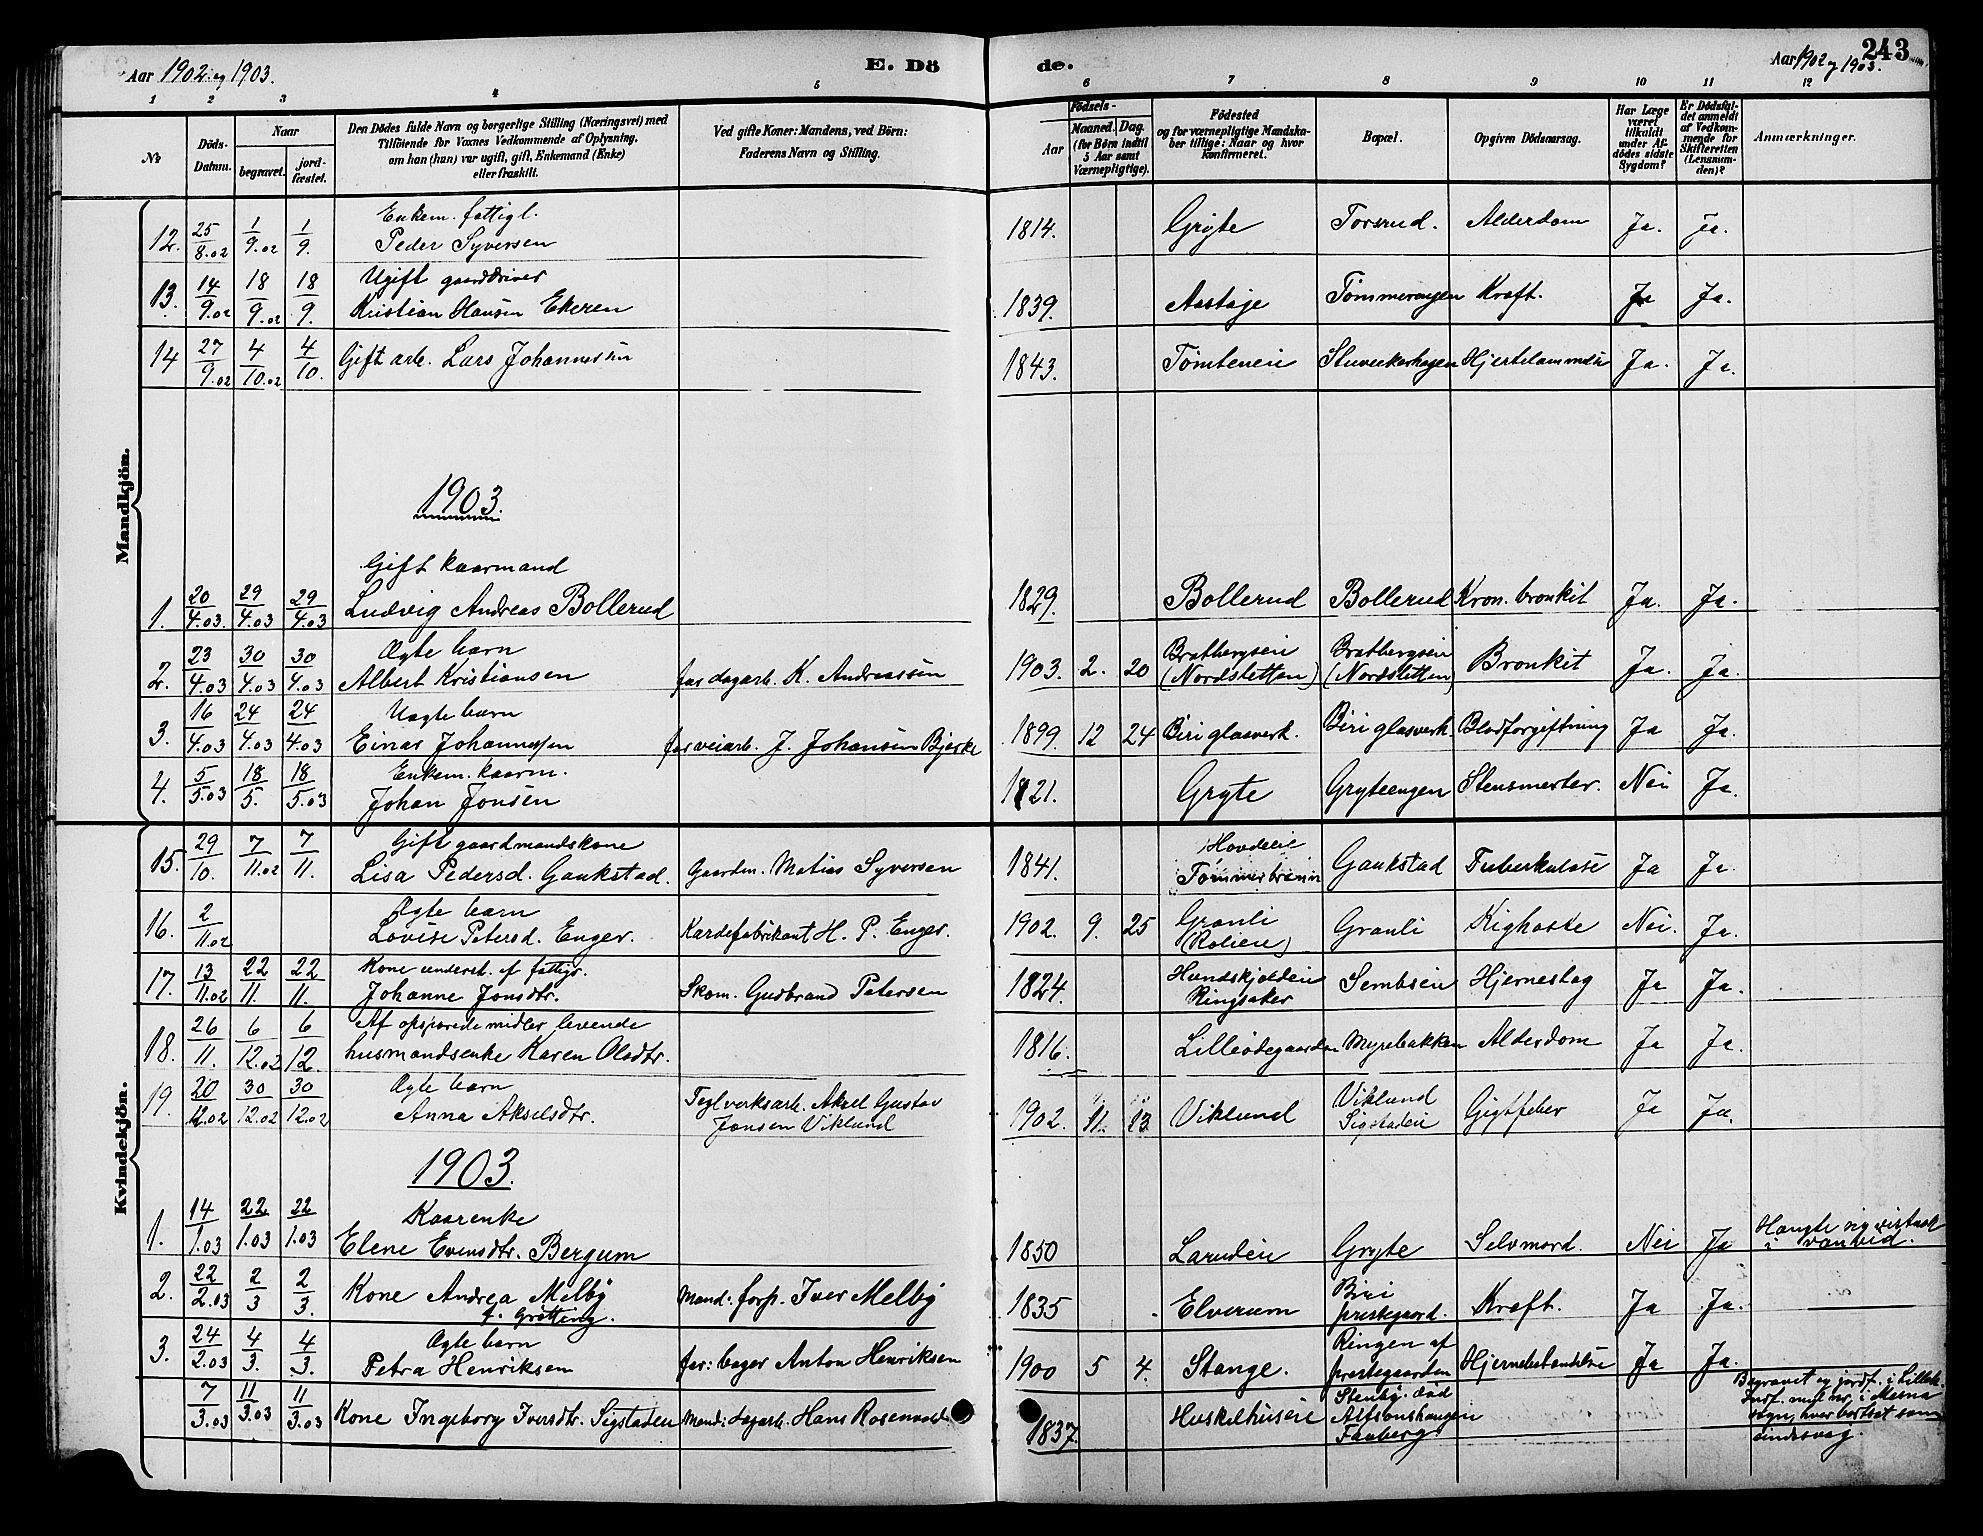 Aar 1902 og 1903.
E. Dö
de.
Aar 1902 og 1903.
243
1 2 3 4 5 6 7 8 9 10 11 12
No
Döds-Datum.
Naar
begravet.
jord-fæstet.
Den Dödes fulde Navn og borgerlige Stilling (Næringsvei) med
Tilföiende for Voxnes Vedkommende af Oplysning,
om han (hun) var ugift, gift, Enkemand (Enke)
eller fraskilt.
Ved gifte Koner: Mandens, ved Börn:
Faderens Navn og Stilling.
Födsels-
Aar
Maaned.
Dag.
(for Börn indtil
5 Aar samt
Værnepligtige).
Födested
og for værnepligtige Mandska-
ber tillige: Naar og hvor
konfirmeret.
Bopæl.
Opgiven Dödsaarsag.
Har Læge
været
tilkaldt
under Af-
dödes sidste
Sygdom?
Er Dödsfal-
det anmeldt
af Vedkom-
mende for
Skifteretten
(Lensman-
den)?
Anmærkninger.
Mandkjön.
12. 25/8.02 1/9.02 1/9. Enkem. fattigl.
Peder Syversen 1814. Gryte Torsrud. Alderdom Ja. Ja.
13. 14/9.02 18/9.02 18/9. Ugift gaarddriver
Kristian Hansen Ekeren 1839. Aastøje Tømmerengen Kræft. Ja Ja.
14 27/9.02 4/10.02 4/10. Gift arb. Lars Johannessen 1843. Tømteneie Hjertelammelse Ja. Ja.
1903.
1. 20/4.03. 29/4.03 29/4.03 Gift kaarmand
Ludvig Andreas Bollerud 1829. Bollerud Bollerud Kron. bronkit Ja. Ja.
2. 23/4.03 30/4.03 30/4.03 Ægte barn
Albert Kristiansen far dagarb. K. Andreassen 1903. 2. 20 Bratbergseie (Nordsletten) Bratbergseie (Nordsletten) Bronkit Ja. Ja.
3. 16/4.03 24/4.03 24/4.03 Uægte barn
Einar Johannessen far veiarb. J. Johansen Bjerke 1899. 12 24 Biri glasverk. Biri glasverk Blodforgiftning Ja Ja.
4. 5/5.03 18/5. 18/5.03 Enkem. kaarm.
Johan Jonsen 1821. Gryte Gryteengen Stensmerter. Nei Ja.
Kvindekjön.
15. 29/10. 7/11.02 7/11. Gift gaardmandskone
Lisa Pedersd. Gaukstad. Gaardm. Matias Syversen 1841. Hovdeie
Tømmerbrænn Gaukstad Tuberkulose Ja Ja.
16. 2/11.02 Ægte barn
Lovise Petersd. Enger. Kardefabrikant H. P. Enger. 1902. 9. 25 Granli Granli Kighoste Nei. Ja.
17. 13/11.02 22/11. 22/11. Kone underst. af fattigv.
Johanne Jonsdtr. Skom. Gudbrand Petersen 1824. Hundskjoldeie
Ringsaker Sembseie Hjerneslag Ja Ja.
18. 26/11. 6/12.02 6/12. Af opsparede midler levende
husmandsenke Karen Olsdtr. 1816. Lilleødegaarden Myrebakken Alderdom Ja Ja.
19. 20/12.02 30/12.02 30/12.02 Ægte barn
Anna Akselsdtr. Teglverksarb. Aksel Gustav
Jonsen Viklund 1902. 11. 13. Viklund Viklund
Sigstadeie Gigtfeber Ja Ja.
1903.
1. 14/1.03 22/1.03 22/1.03 Kaarenke
Elene Evensdtr. Bergum 1850 Larudeie Gryte Selvmord. Nei Ja Hængte sig
i vanvid.
2. 22/2.03 2/3 2/3. Kone Andrea Melby
f. Grøtting. Mand: forp. Iver Melby 1835 Elverum Biri
prestegaard. Kræft. Ja Ja.
3. 24/2.03 4/3. 4/3. Ægte barn
Petra Henriksen far: bager Anton Henriksen 1900 5 4. Stange. Ringen af
prestegaarden Hjernebetændelse Ja Ja.
7/3.03 11/3.03 11/3.03 Kone Ingeborg Iversdtr. Sigstadeie Mand: dagarb. Hans Rosenvold 1837. Huskelhuseie Stenbg. død
Alfsonshaugen
Faaberg Begravet og jordf. i Lilleh.
Indf. med no. i Mesna
sogn, hvor bortsat som
sindssvag.